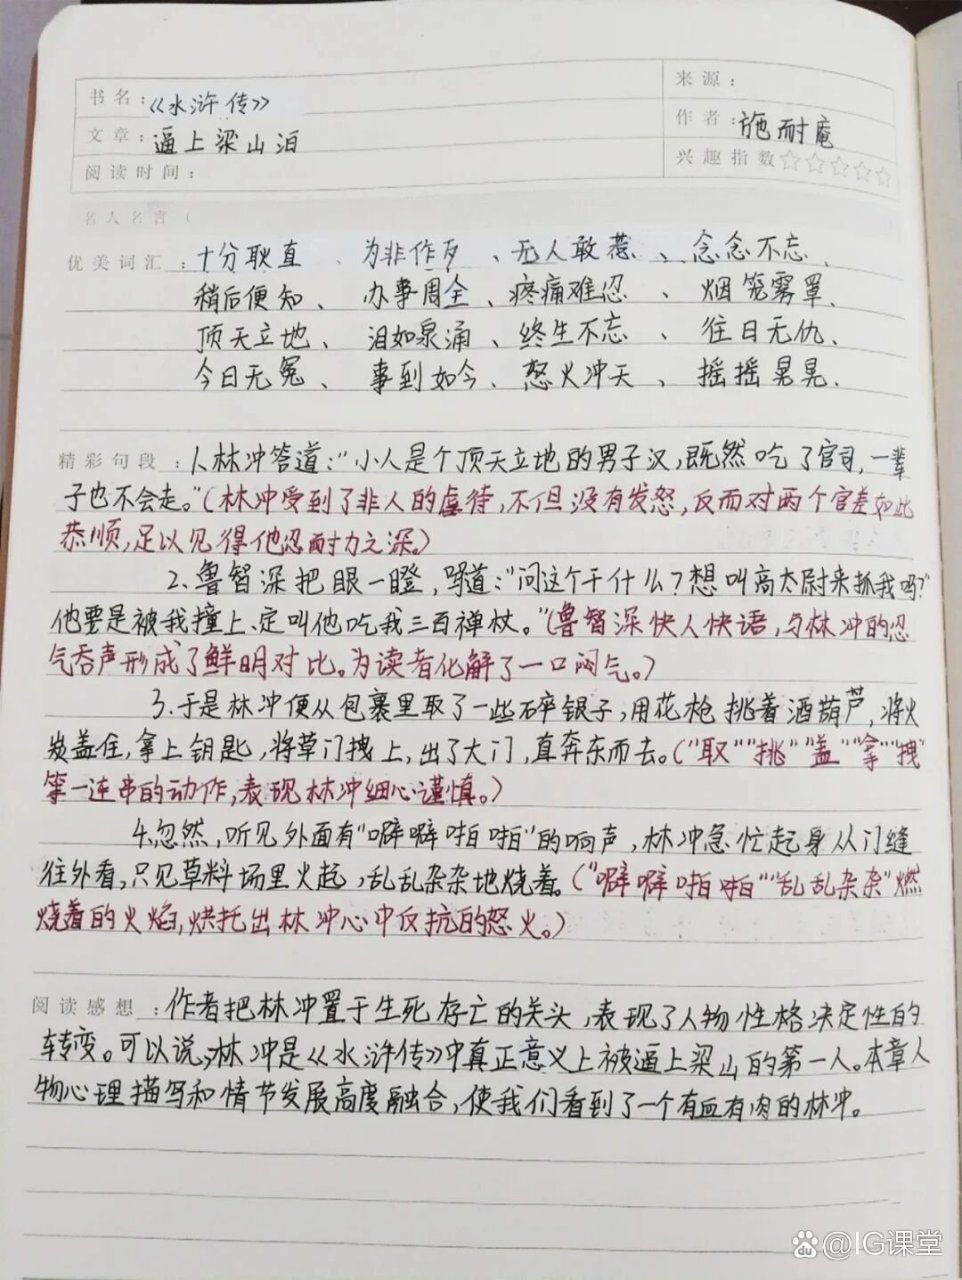 书名：《水浒传》
来源：
文章：逼上梁山泊
作者：施耐庵
阅读时间：
兴趣指数☆☆☆☆☆
名人名言（
优美词汇：十分耿直、为非作歹、无人敢惹、念念不忘、
稍后便知、办事周全、疼痛难忍、烟笼雾罩、
顶天立地、泪如泉涌、终生不忘、往日无仇、
今日无冤、事到如今、怒火冲天、摇摇晃晃、
精彩句段：1、林冲答道："小人是个顶天立地的男子汉，既然吃了官司，一辈
子也不会走。"（林冲受到了非人的虐待，不但没有发怒，反而对两个官差如此
恭顺，足以见得他忍耐力之深。）
2、鲁智深把眼一瞪，道："问这个干什么？想叫高太尉来抓我吗？
他要是被我撞上、定叫他吃我三百禅杖。"（鲁智深快人快语，与林冲的忍
气吞声形成了鲜明对比。为读者化解了一口闷气。）
3、于是林冲便从包裹里取了一些碎银子，用花枪挑着酒葫芦，将火
炭盖住，拿上钥匙，将草门拽上，出了大门，直奔东而去。（"取""挑""盖""拿""拽"
等一连串的动作，表现林冲细心谨慎。）
4、忽然，听见外面有"噼噼啪啪"的响声，林冲急忙起身从门缝
往外看，只见草料场里火起，乱乱杂杂地烧着。（"噼噼啪啪""乱乱杂杂"燃
烧着的火焰，烘托出林冲心中反抗的怒火。）
阅读感想：作者把林冲置于生死存亡的关头，表现了人物性格决定性的
转变。可以说，林冲是《水浒传》中真正意义上被逼上梁山的第一人。本章人
物心理描写和情节发展高度融合，使我们看到了一个有血有肉的林冲。
Baidu @IG课堂